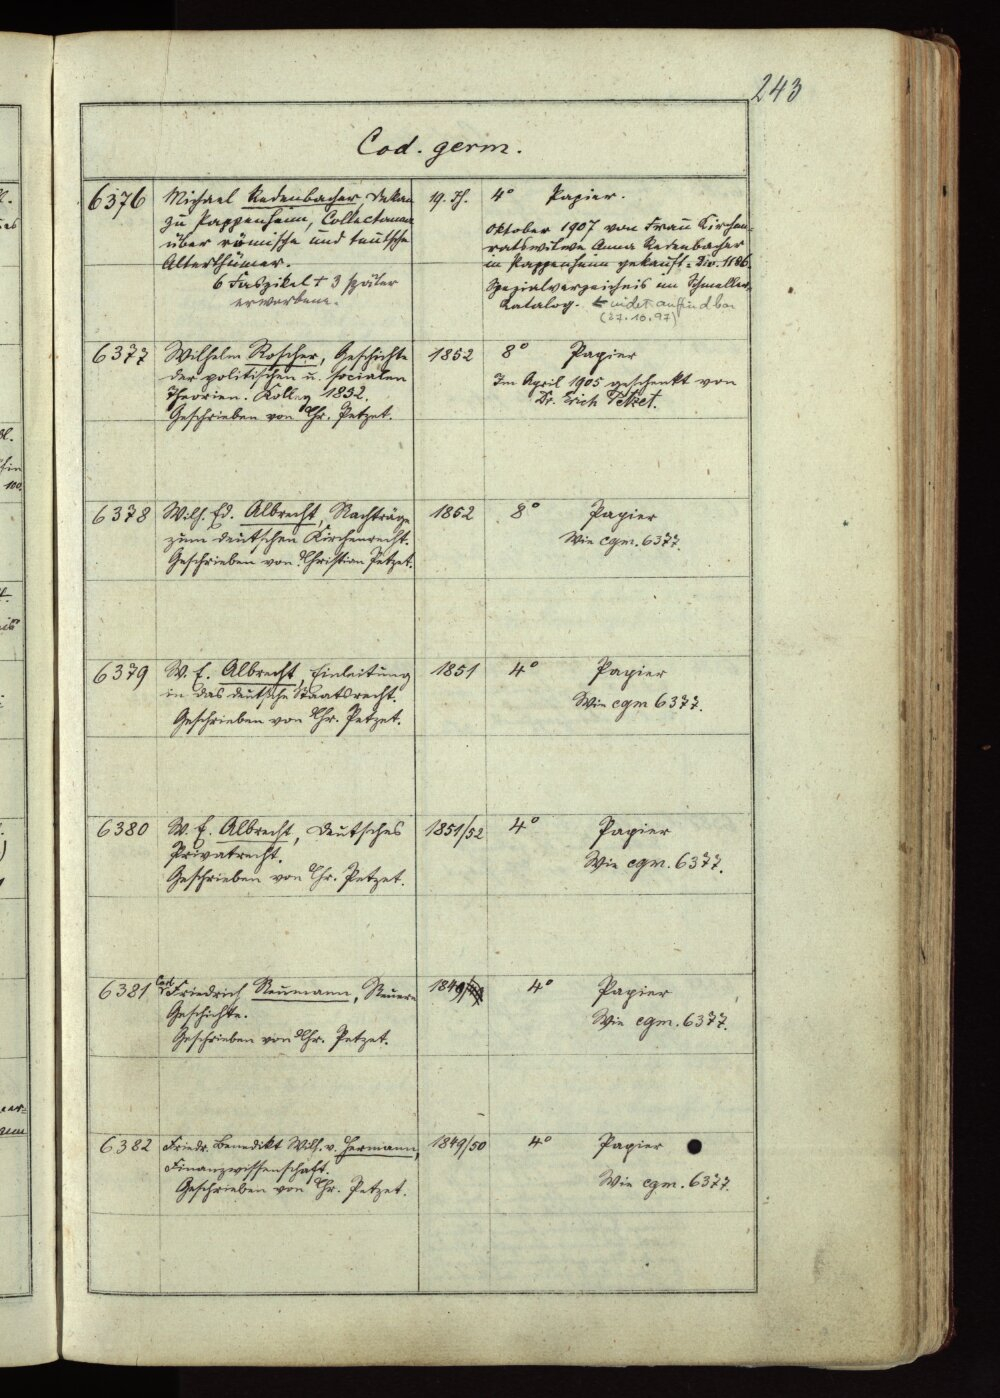 243
Cod. germ.
6376 Michael Redenbacher, Dekan 19. Jh. 4° Papier.
zu Pappenheim, Collectaneen
über römische und teutsche
Alterthümer.
6 Faszikel + 3 später
erworbene.
Oktober 1907 von Frau Kirchen-
ratswitwe Anna Redenbacher
in Pappenheim gekauft = Div. 1186.
Spezialverzeichnis im Schmeller-
Katalog. ← nicht auffindbar
(27.10.97)
6377 Wilhelm Roscher, Geschichte 1852 8° Papier
der politischen u. socialen
Theorien. Kolleg 1832.
Geschrieben von Chr. Petzet.
Im April 1905 geschenkt von
Dr. Erich Petzet.
6378 Wilh. Ed. Albrecht, Nachträge 1852 8° Papier
zum deutschen Kirchenrecht.
Geschrieben von Christian Petzet.
Wie cgm. 6377.
6379 W. E. Albrecht, Einleitung 1851 4° Papier
in das deutsche Staatsrecht.
Geschrieben von Chr. Petzet.
Wie cgm 6377.
6380 W. E. Albrecht, Deutsches 1851/52 4° Papier
Privatrecht.
Geschrieben von Chr. Petzet.
Wie cgm. 6377.
6381 Carl Friedrich Neumann, Neuere 1849 4° Papier
Geschichte.
Geschrieben von Chr. Petzet.
Wie cgm. 6377.
6382 Friedr. Benedikt Wilh. v. Hermann, 1849/50 4° Papier
Finanzwissenschaft.
Geschrieben von Chr. Petzet.
Wie cgm. 6377.